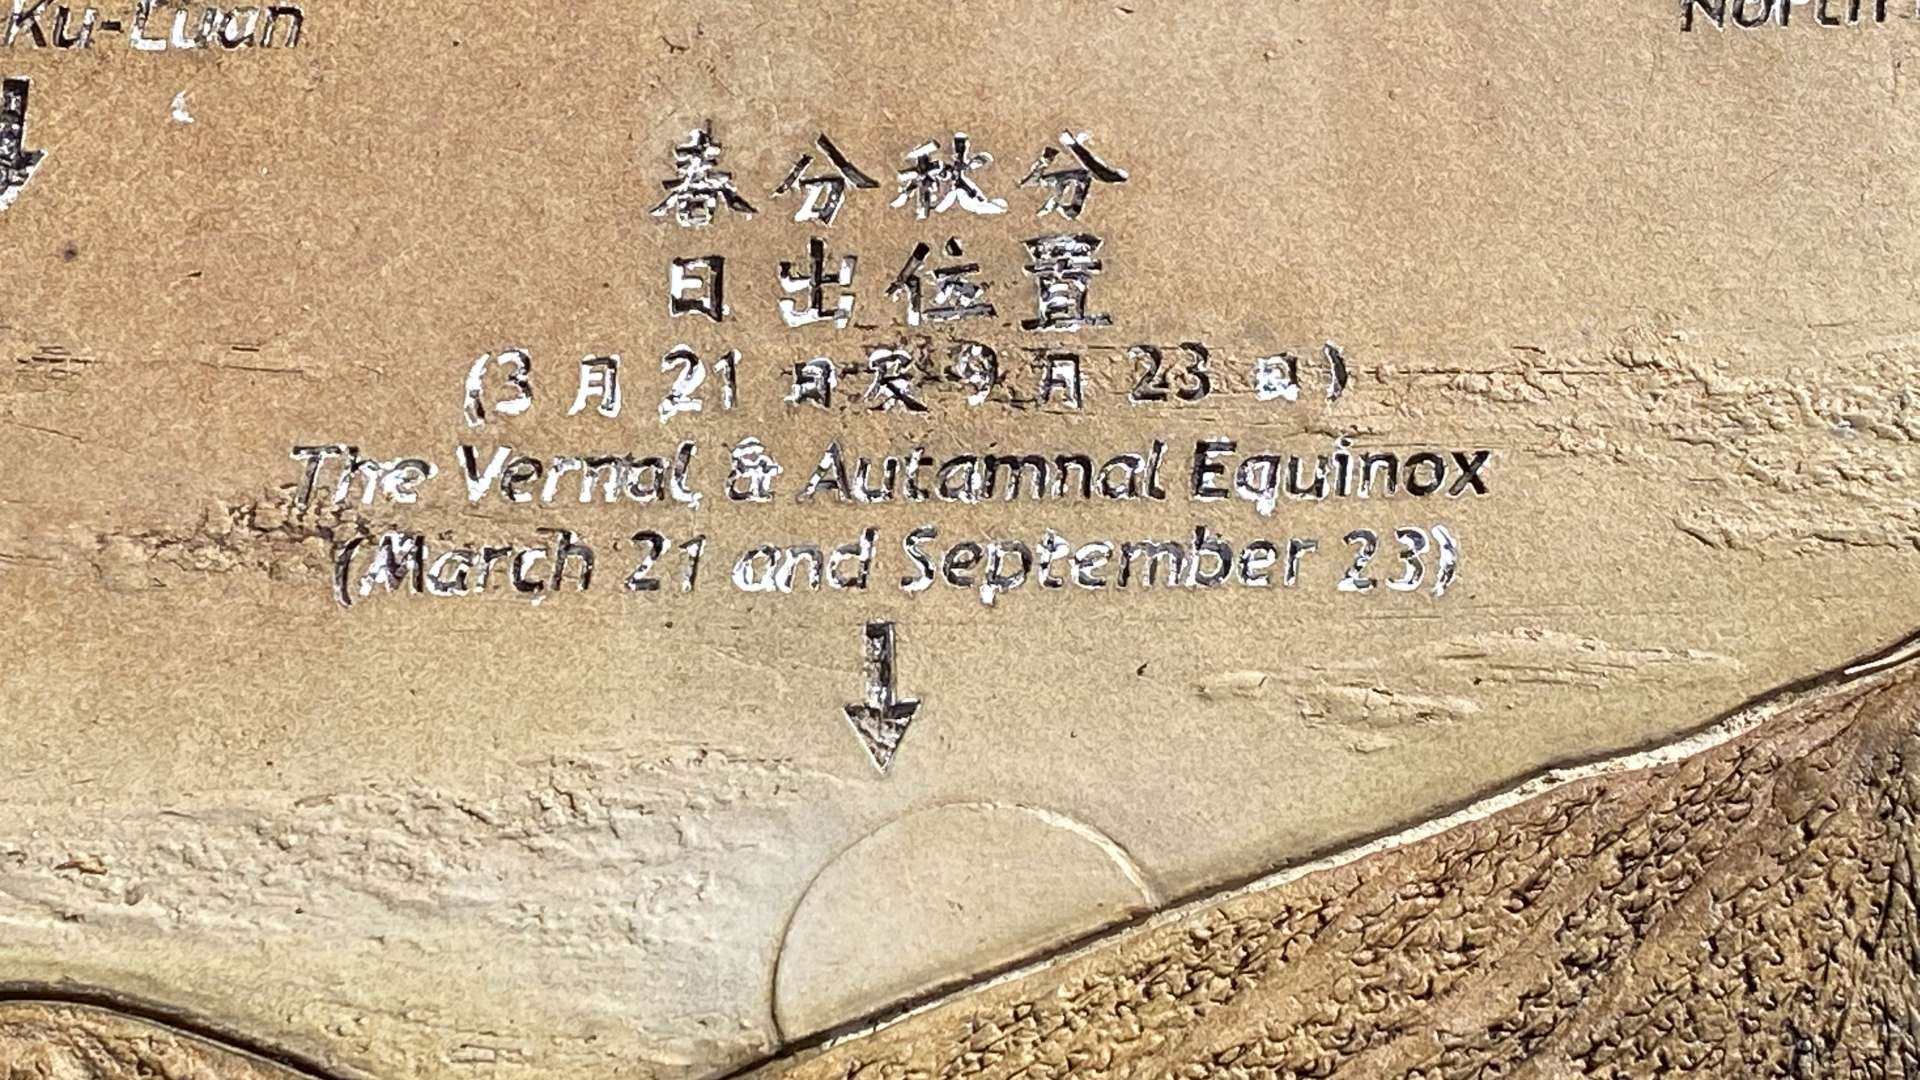 Ku-Luan
North
春分秋分
日出位置
(3月21日及9月23日)
The Vernal & Autamnal Equinox
(March 21 and September 23)